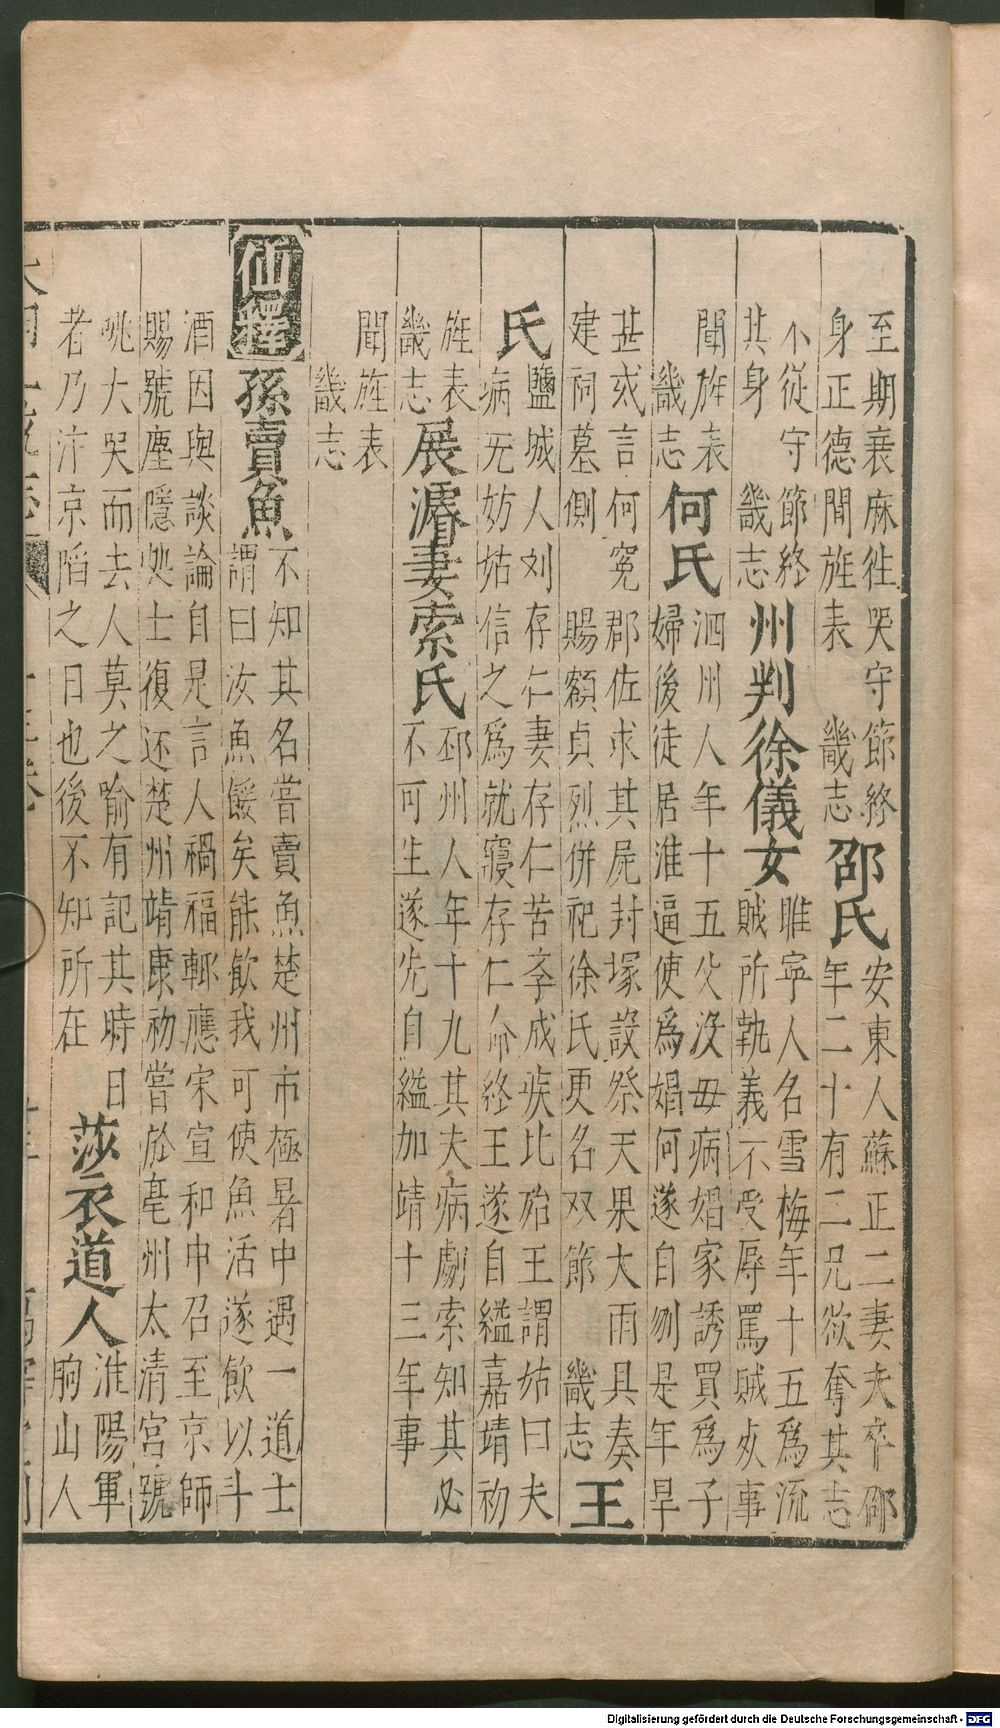 至期衰麻徃哭守節終
身正德間旌表　畿志
邵氏
安東人蘇正二妻夫卒邵
年二十有二兄欲奪其志
不從守節終
其身　畿志
州判徐儀女
睢寧人名雪梅年十五爲流
賊所執義不受辱罵賊必事
聞旌表
畿志
何氏
泗州人年十五父没毋病娼家誘買爲子
婦後徒居淮逼使爲娼何遂自刎是年旱
甚或言何寃郡佐求其屍封塚設祭天果大雨具奏
建祠墓側　賜額貞烈併祀徐氏更名双節　畿志
王
氏
鹽城人刘存仁妻存仁苦孝成疾比殆王謂姑曰夫
病无妨姑信之爲就寢存仁命終王遂自縊嘉靖初
旌表
畿志
展濬妻索氏
邳州人年十九其夫病劇索知其必
不可生遂先自縊加靖十三年事
聞旌表
畿志
仙釋
孫賣魚
不知其名嘗賣魚楚州市極暑中遇一道士
謂曰汝魚餒矣能飲我可使魚活遂飲以斗
酒因與談論自是言人禍福輙應宋宣和中召至京師
賜號塵隱処士復还楚州靖康初嘗於亳州太清宮號
咷大哭而去人莫之喻有記其時日
者乃汴京陷之日也後不知所在
莎衣道人
淮陽軍
朐山人
Digitalisierung gefördert durch die Deutsche Forschungsgemeinschaft - DFG